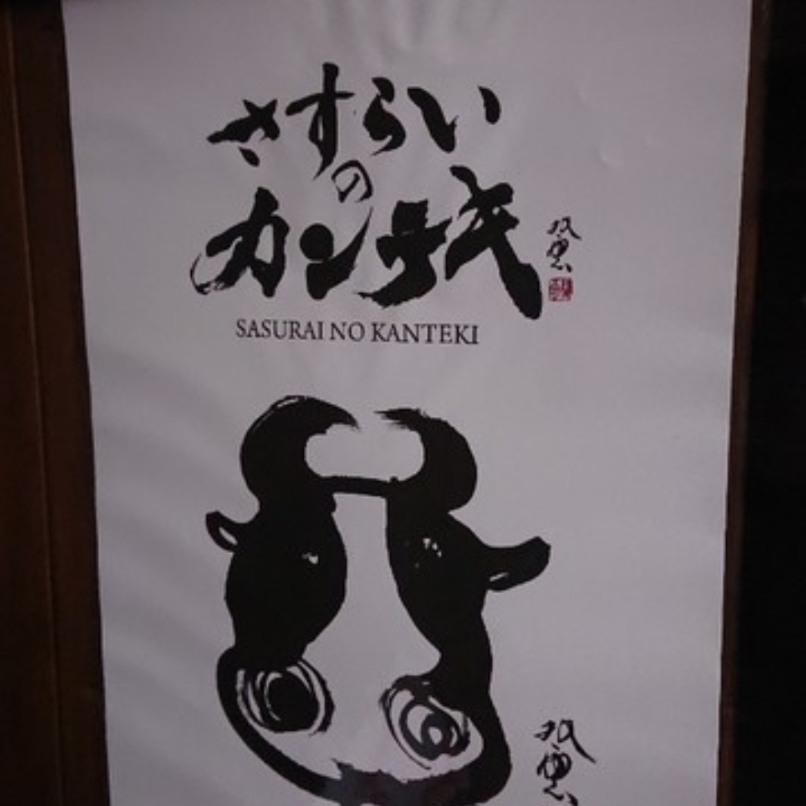 さすらい
の
カンテキ
SASURAI NO KANTEKI